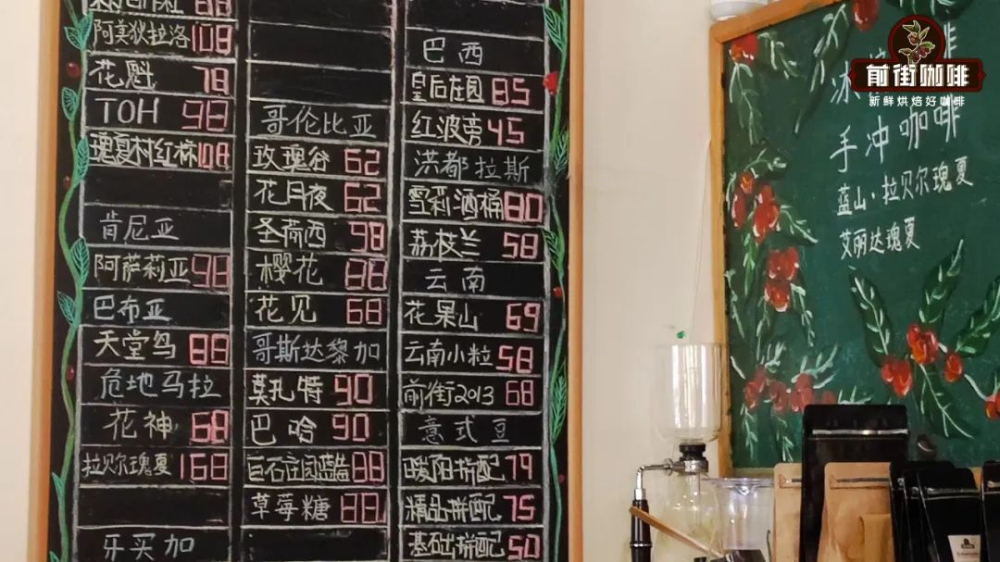 88
阿美狄拉洛 108
花魁 78
TOH 98
瑰夏村红标 108
肯尼亚
阿萨莉亚 98
巴布亚
天堂鸟 88
危地马拉
花神 68
拉贝尔瑰夏 168
牙买加
哥伦比亚
玫瑰谷 62
花月夜 62
圣荷西 98
樱花 88
花见 68
哥斯达黎加
莫扎特 90
巴哈 90
巨石庄园蓝蕴 88
草莓糖 88
巴西
皇后庄园 85
红波旁 45
洪都拉斯
雪莉酒桶 80
荔枝兰 58
云南
花果山 69
云南小粒 58
前街2013 68
意式豆
暖阳拼配 79
精品拼配 75
基础拼配 50
手冲咖啡
蓝山·拉贝尔瑰夏
艾丽达瑰夏
前街咖啡
新鲜烘焙好咖啡